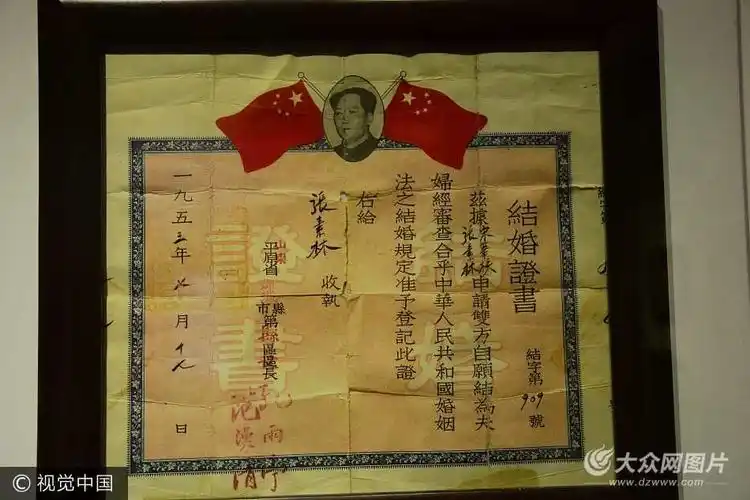 結婚證書
結字第909號
茲據張素林申請雙方自願結為夫
婦經審查合乎中華人民共和國婚姻
法之結婚規定准予登記此證
右給
張素林 收執
山東
平原省
縣
市第 區區長
一九五三年 月十九日
結婚
證書
© 视觉中国
大众网图片
www.dzwww.com